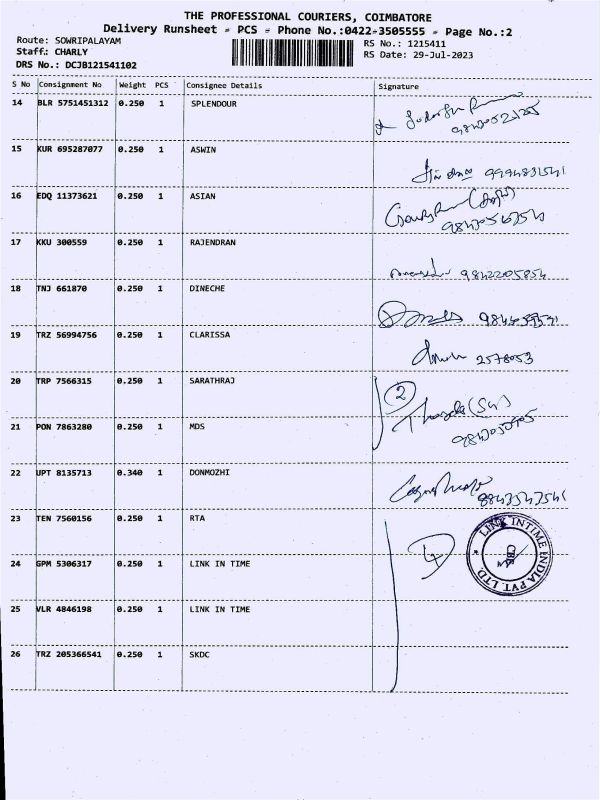 THE PROFESSIONAL COURIERS, COIMBATORE
Delivery Runsheet - PCS - Phone No.:0422-3505555 - Page No.:2
Route: SOWRIPALAYAM
RS No.: 1215411
Staff.: CHARLY
RS Date: 29-Jul-2023
DRS No.: DCJB121541102
S No Consignment No Weight PCS Consignee Details Signature
14 BLR 5751451312 0.250 1 SPLENDOUR
15 KUR 695287077 0.250 1 ASWIN
16 EDQ 11373621 0.250 1 ASIAN
17 KKU 300559 0.250 1 RAJENDRAN
9842205854
18 TNJ 661870 0.250 1 DINECHE
19 TRZ 56994756 0.250 1 CLARISSA
2578053
20 TRP 7566315 0.250 1 SARATHRAJ
2
21 PON 7863280 0.250 1 MDS
22 UPT 8135713 0.340 1 DONMOZHI
23 TEN 7560156 0.250 1 RTA
LINK INTIME INDIA PVT. LTD.
CBE
4
24 GPM 5306317 0.250 1 LINK IN TIME
25 VLR 4846198 0.250 1 LINK IN TIME
26 TRZ 205366541 0.250 1 SKDC